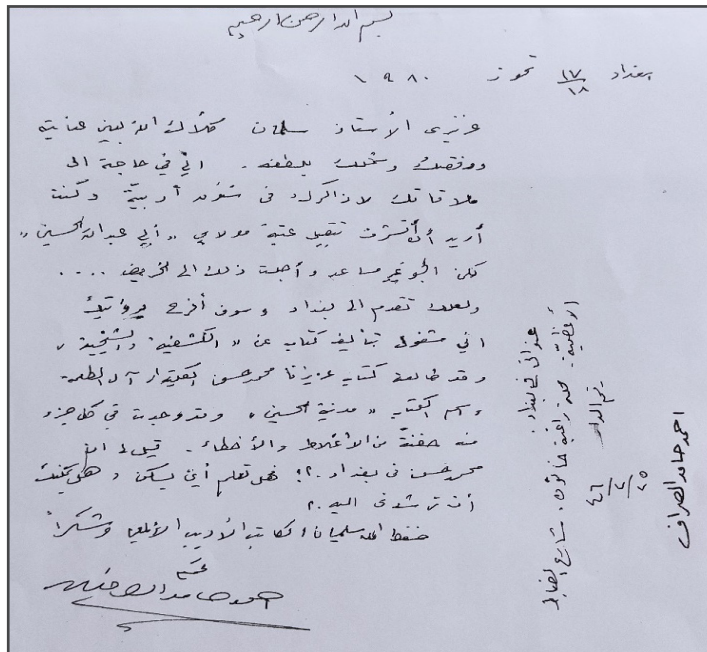 بسم الله الرحمن الرحيم
بغداد ١٧/١٨ تموز ١٩٨٠
عزيزي الأستاذ سلمان كلأك الله بعين عنايته
ووفقك وشملك بلطفه. اني في حاجة الى
ملاقاتك لاذاكرك في شؤون أدبية وكنت
أريد أن أتشرف بتقبيل عتبة مولاي "أبي عبد الله الحسين"
لكن الجو غير مساعد وأجلت ذلك الى الخريف ....
ولعلك تقدم الى بغداد وسوف أفرح
اني مشغول بتأليف كتاب عن "الكشفية والشيخية"
وقد طالعت كتاب عزيزنا محمد حسن آل طعمة
واسم الكتاب "مدينة الحسين" وقد وجدت في كل جزء
منه حفنة من الأغلاط والأخطاء. قيل لي ان
محمد حسن في بغداد.؟! فهل تعلم أين يسكن وهل يمكنك
أن ترشدني اليه.؟
حفظ الله سلمان الكاتب الأديب الألمعي وشكراً
محبكم
احمد حامد الصراف
عنواني في بغداد:
الأعظمية. محلة راغبة خاتون. شارع الضباط
رقم الدار ٤٥/٧/٤٦
احمد حامد الصراف